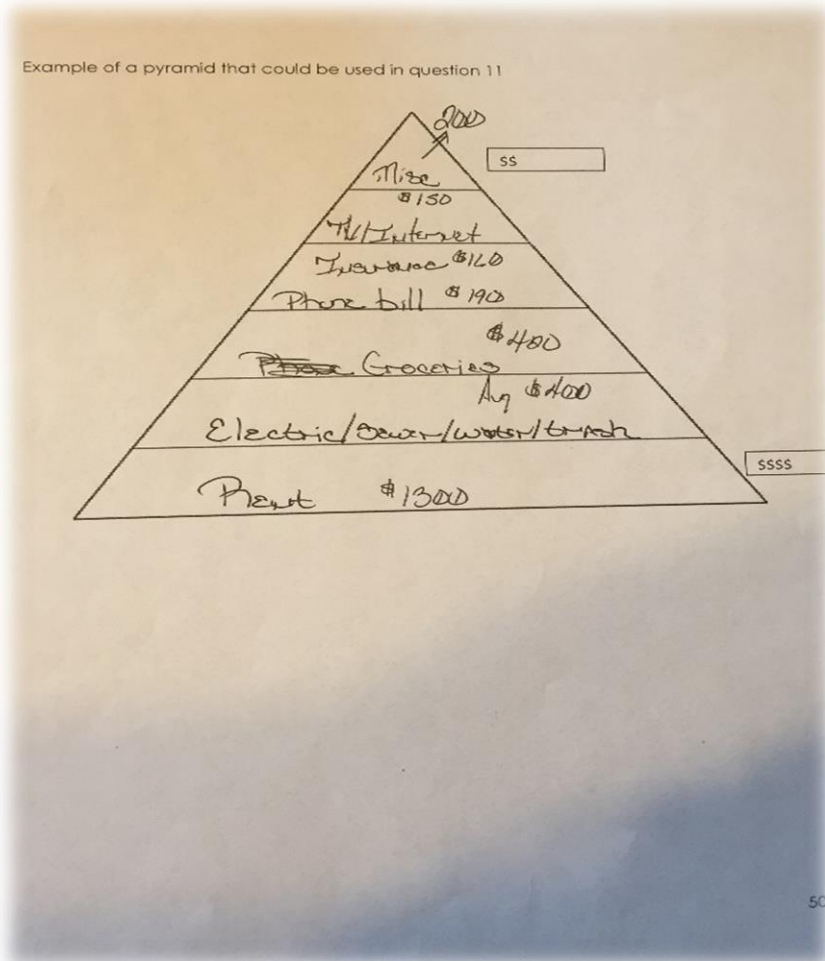 Example of a pyramid that could be used in question 11
200
$$
Misc
$150
TV/Internet
Insurance $160
Phone bill $190
$400
Groceries
Avg $400
Electric/Sewer/water/trash
$$$$
Rent $1300
50